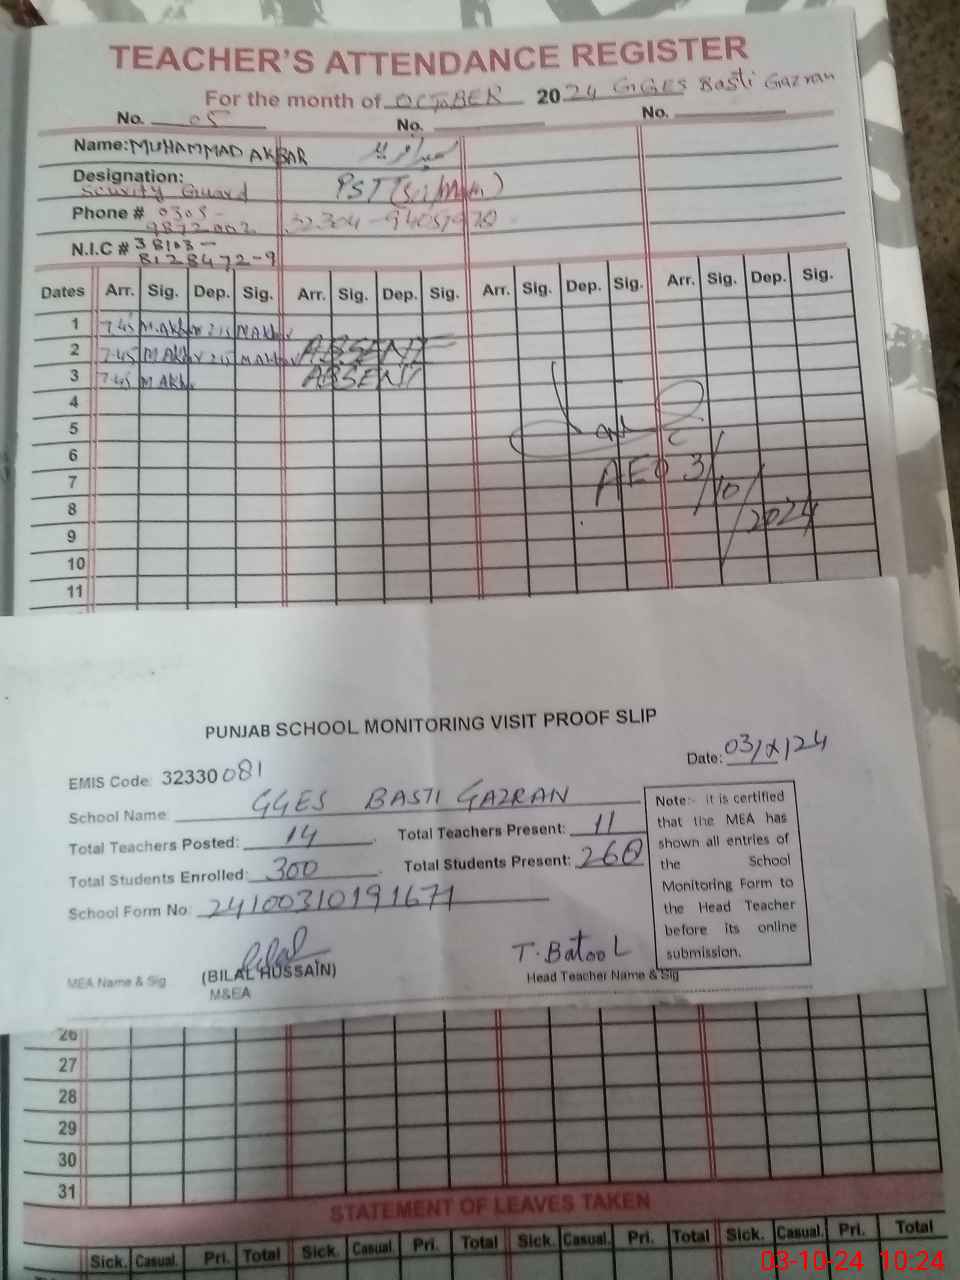 TEACHER'S ATTENDANCE REGISTER
For the month of OCTOBER 2024 GGES Basti Gazran
No. 05 No. No.
Name: MUHAMMAD AKBAR
Designation: Scurity Guard PST (Sci/Math)
Phone # 0305-
9872002
N.I.C # 38103-
8128472-9
Dates Arr. Sig. Dep. Sig. Arr. Sig. Dep. Sig. Arr. Sig. Dep. Sig. Arr. Sig. Dep. Sig.
1 7:45 M.Akbar 2:15 M.Akbar
2 7:45 M Akbar 2:15 M Akbar ABSENT
3 7:45 M Akbar ABSENT
4
5
6
AEO 3/10/2024
7
8
9
10
11
PUNJAB SCHOOL MONITORING VISIT PROOF SLIP
Date: 03/X/24
EMIS Code: 32330081
School Name: GGES BASTI GAZRAN
Total Teachers Posted: 14 Total Teachers Present: 11
Total Students Enrolled: 300 Total Students Present: 260
School Form No: 24100310191671
Note:- it is certified
that the MEA has
shown all entries of
the School
Monitoring Form to
the Head Teacher
before its online
submission.
Bilal T. Batool
MEA Name & Sig (BILAL HUSSAIN) Head Teacher Name & Sig
M&EA
26
27
28
29
30
31
STATEMENT OF LEAVES TAKEN
Sick. Casual. Pri. Total Sick. Casual. Pri. Total Sick. Casual. Pri. Total Sick. Casual. Pri. Total
03-10-24 10:24